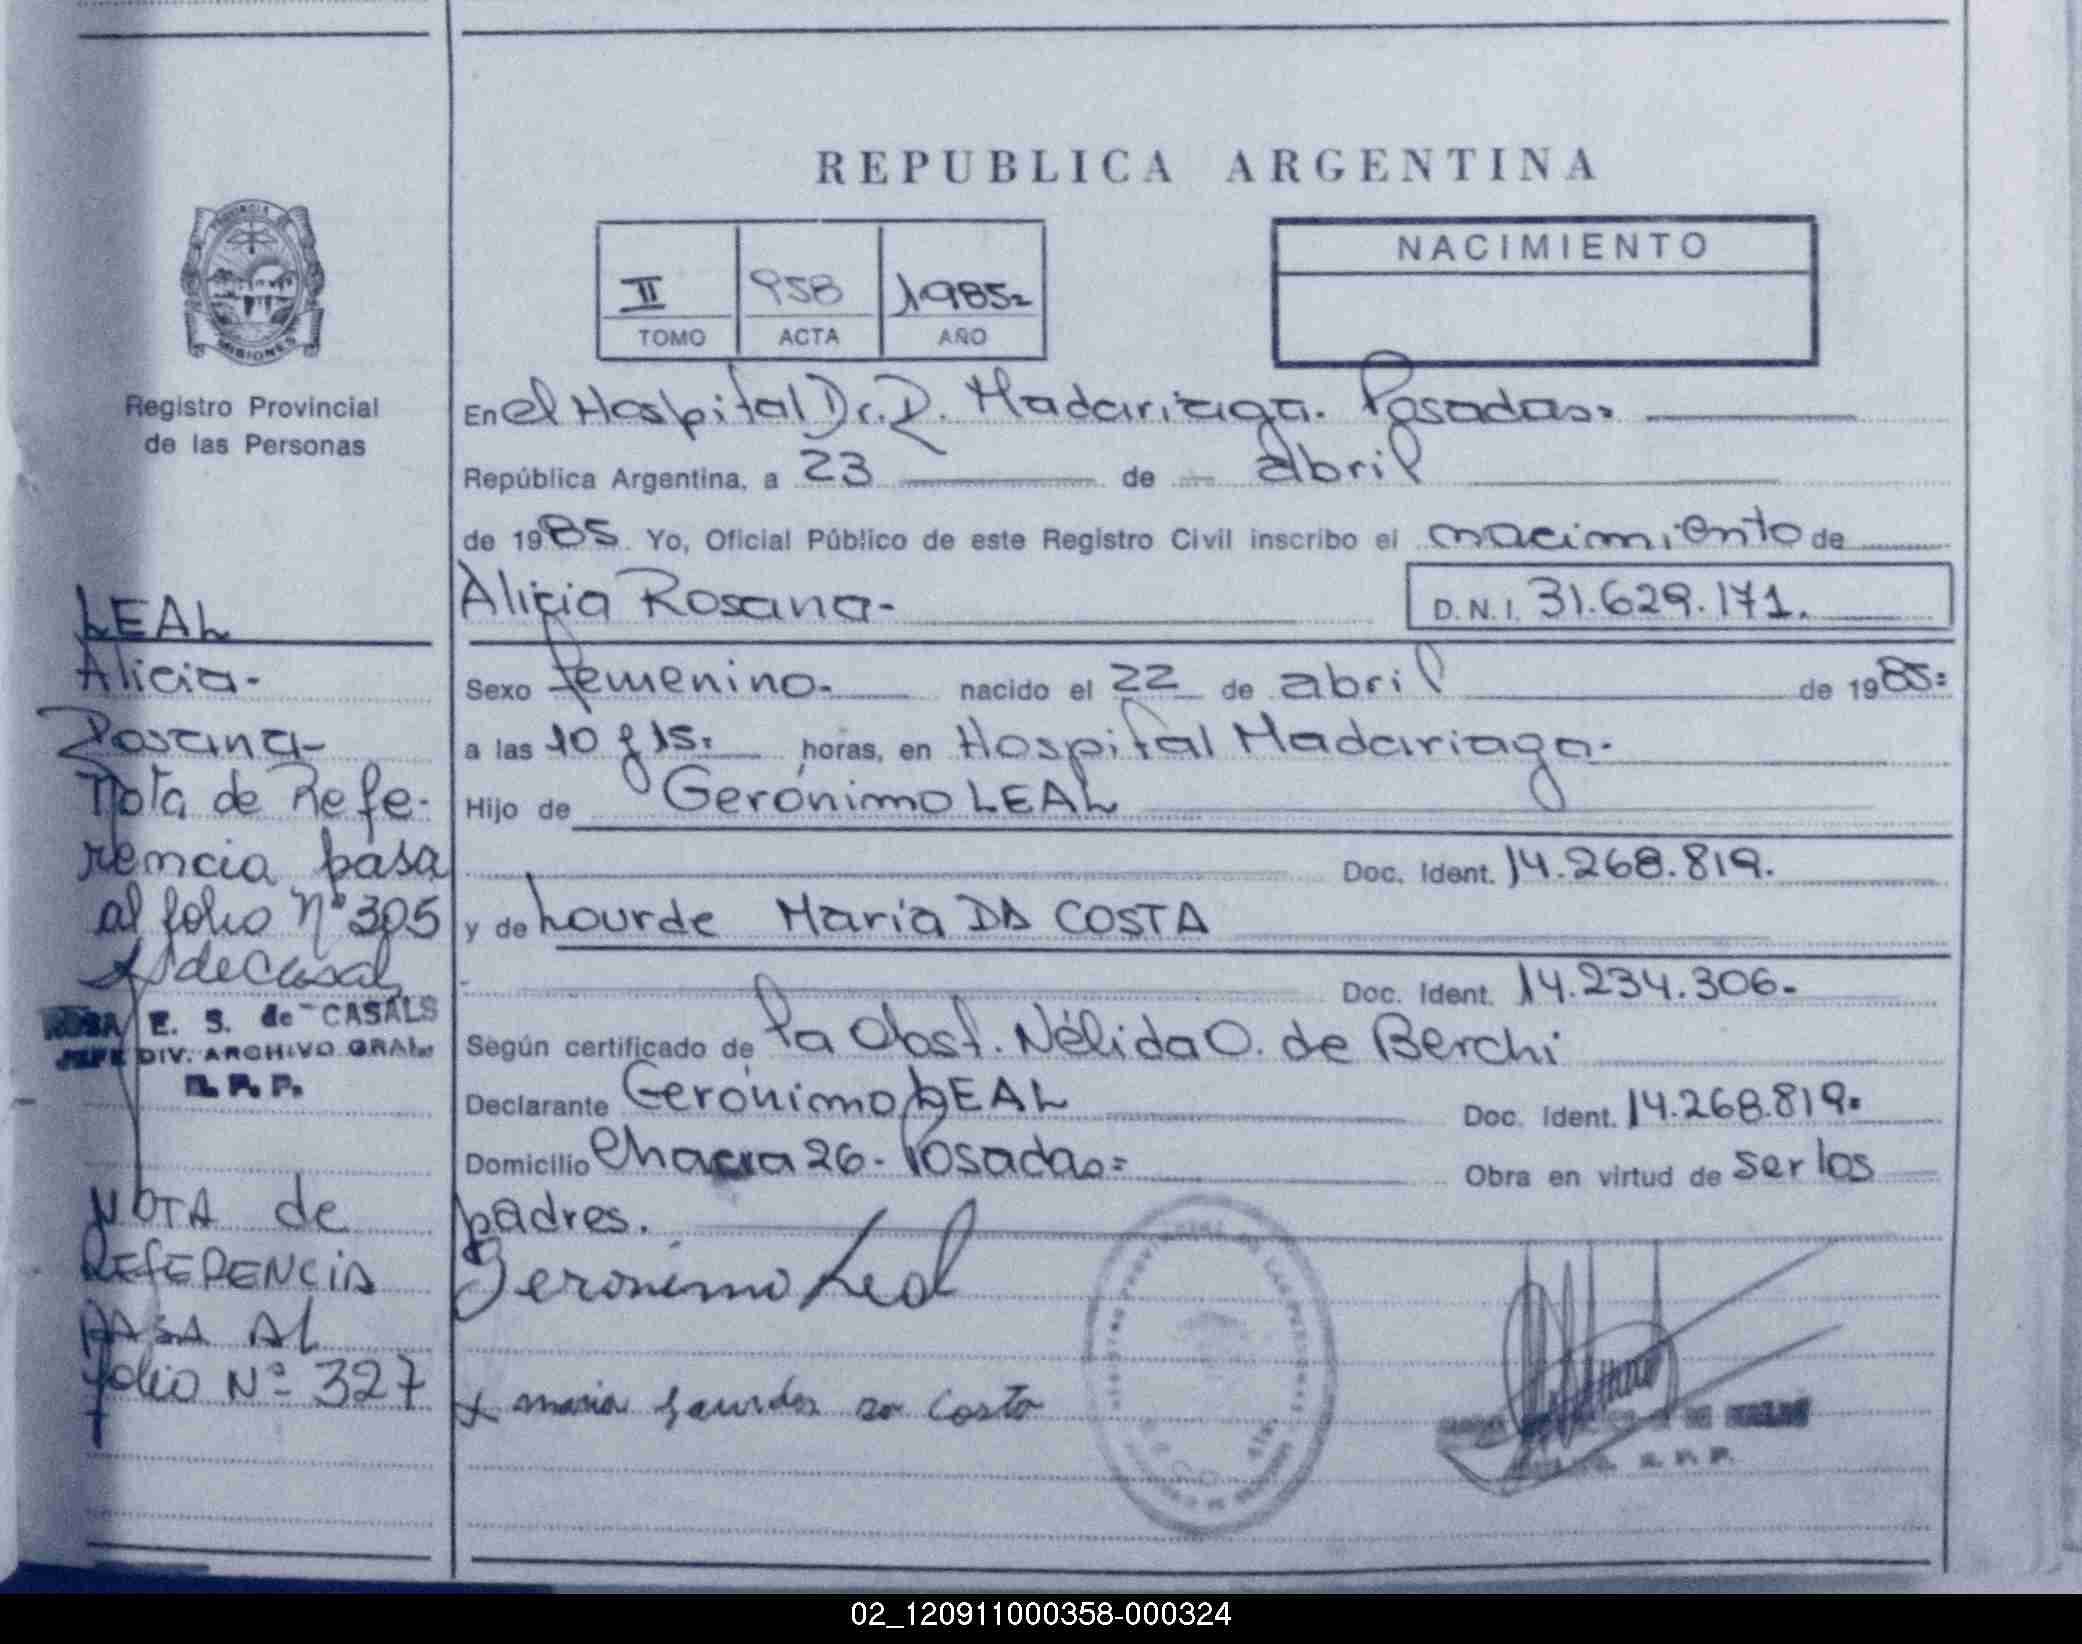 REPUBLICA ARGENTINA
PROVINCIA
MISIONES
Registro Provincial
de las Personas
II
958
1985=
TOMO
ACTA
AÑO
NACIMIENTO
En el Hospital Dr. R. Madariaga. Posadas=
República Argentina, a 23 de abril
de 1985 Yo, Oficial Público de este Registro Civil inscribo el nacimiento de
Alicia Rosana-
D.N.I. 31.629.171.
Sexo femenino. nacido el 22 de abril de 1985=
a las 10 y 15= horas, en Hospital Madariaga.
Hijo de Gerónimo LEAL
Doc. Ident. 14.268.819.
y de Lourde Maria DA COSTA
Doc. Ident. 14.234.306.
Según certificado de la Obst. Nélida O. de Berchi
Declarante Gerónimo LEAL Doc. Ident. 14.268.819.
Domicilio Chacra 26- Posadas= Obra en virtud de ser los
padres.
Geronimo Leal
x maria Costa
LEAL
Alicia-
Rosana-
Nota de Refe-
rencia pasa
al folio Nº 305
de Casals
ROSA E. S. de CASALS
JEFE DIV. ARCHIVO GRAL.
R. P. P.
NOTA de
REFERENCIA
PASA AL
folio Nº 327
R. P. P.
02_120911000358-000324